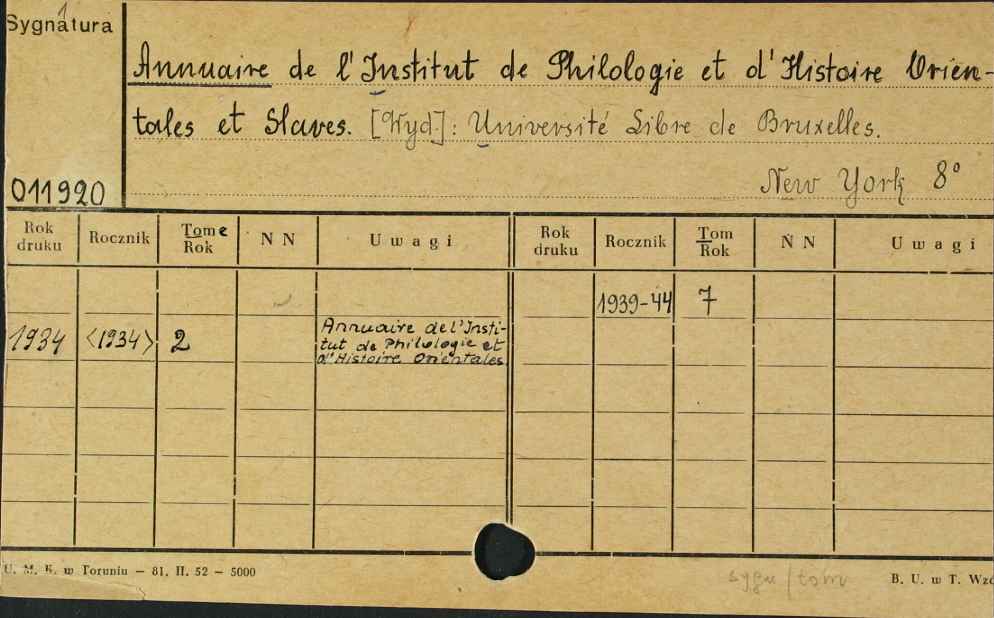 Sygnatura
Annuaire de l'Institut de Philologie et d'Histoire Orien-
tales et Slaves. [Wyd]: Université Libre de Bruxelles.
New York 8°
011920
Rok druku Rocznik Tome Rok N N Uwagi Rok druku Rocznik Tom Rok N N Uwagi
1939-44 7
1934 <1934> 2 Annuaire de l'Insti-
tut de Philologie et
d'Histoire Orientales
U. M. K. w Toruniu — 81. II. 52 — 5000
sygn/tom
B. U. w T.